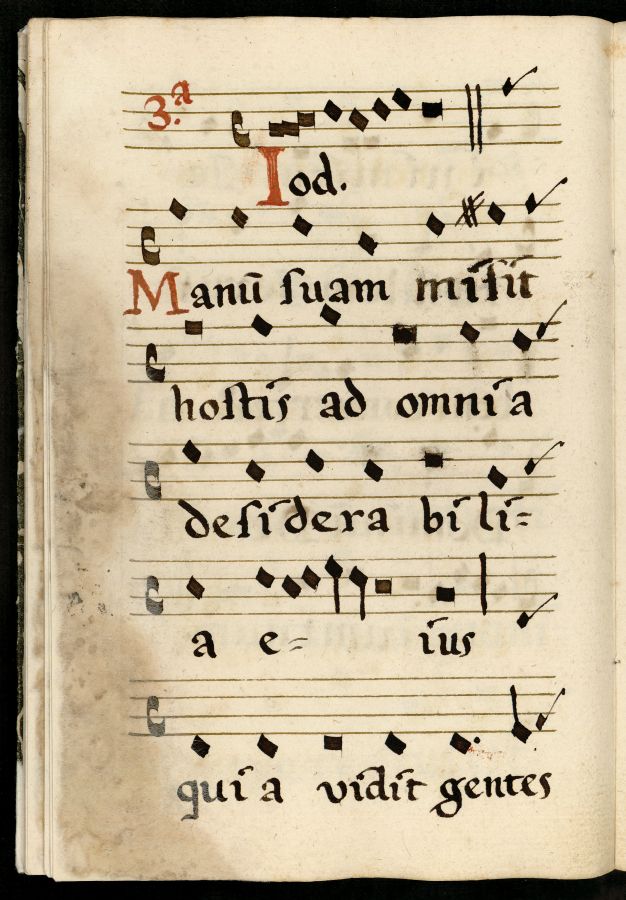 3.ª
Iod.
Manū suam misit
hostis ad omnia
desidera bili=
a e= ius
quia vidit gentes